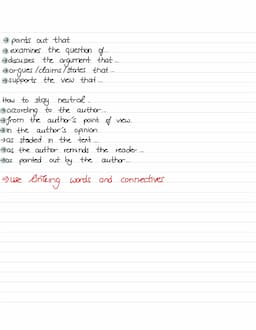 → points out that
→ examines the question of...
→ discusses the argument that...
→ argues/claims/states that...
→ supports the view that...
How to stay neutral...
→ according to the author...
→ from the author's point of view.
→ in the author's opinion
→ as stated in the text...
→ as the author reminds the reader...
→ as pointed out by the author...
→ use linking words and connectives